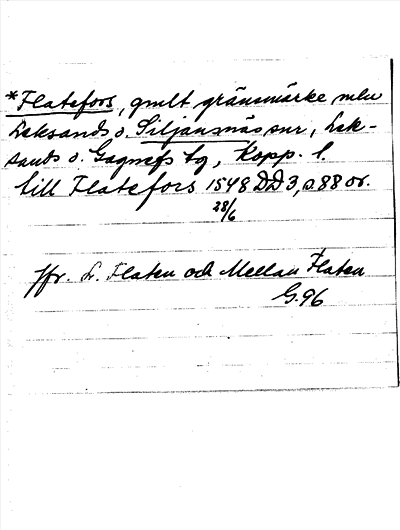 *Flatefors, gmlt gränsmärke mln
Leksands o. Siljansnäs snr, Lek-
sands o. Gagnefs tg, Kopp. l.
till Flatefors 1548 DD3, s. 88 or.
28/6
Jfr. L. Flaten och Mellan Flaten
G. 96